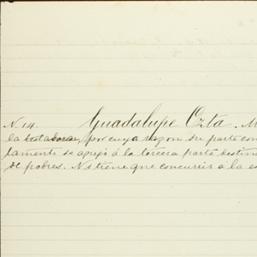 N. 14. Guadalupe Ozta. M
la testadora, por cuya razon su parte con
tamente se agregó á la tercera parte destin
de pobres. No tiene que concurrir á la es